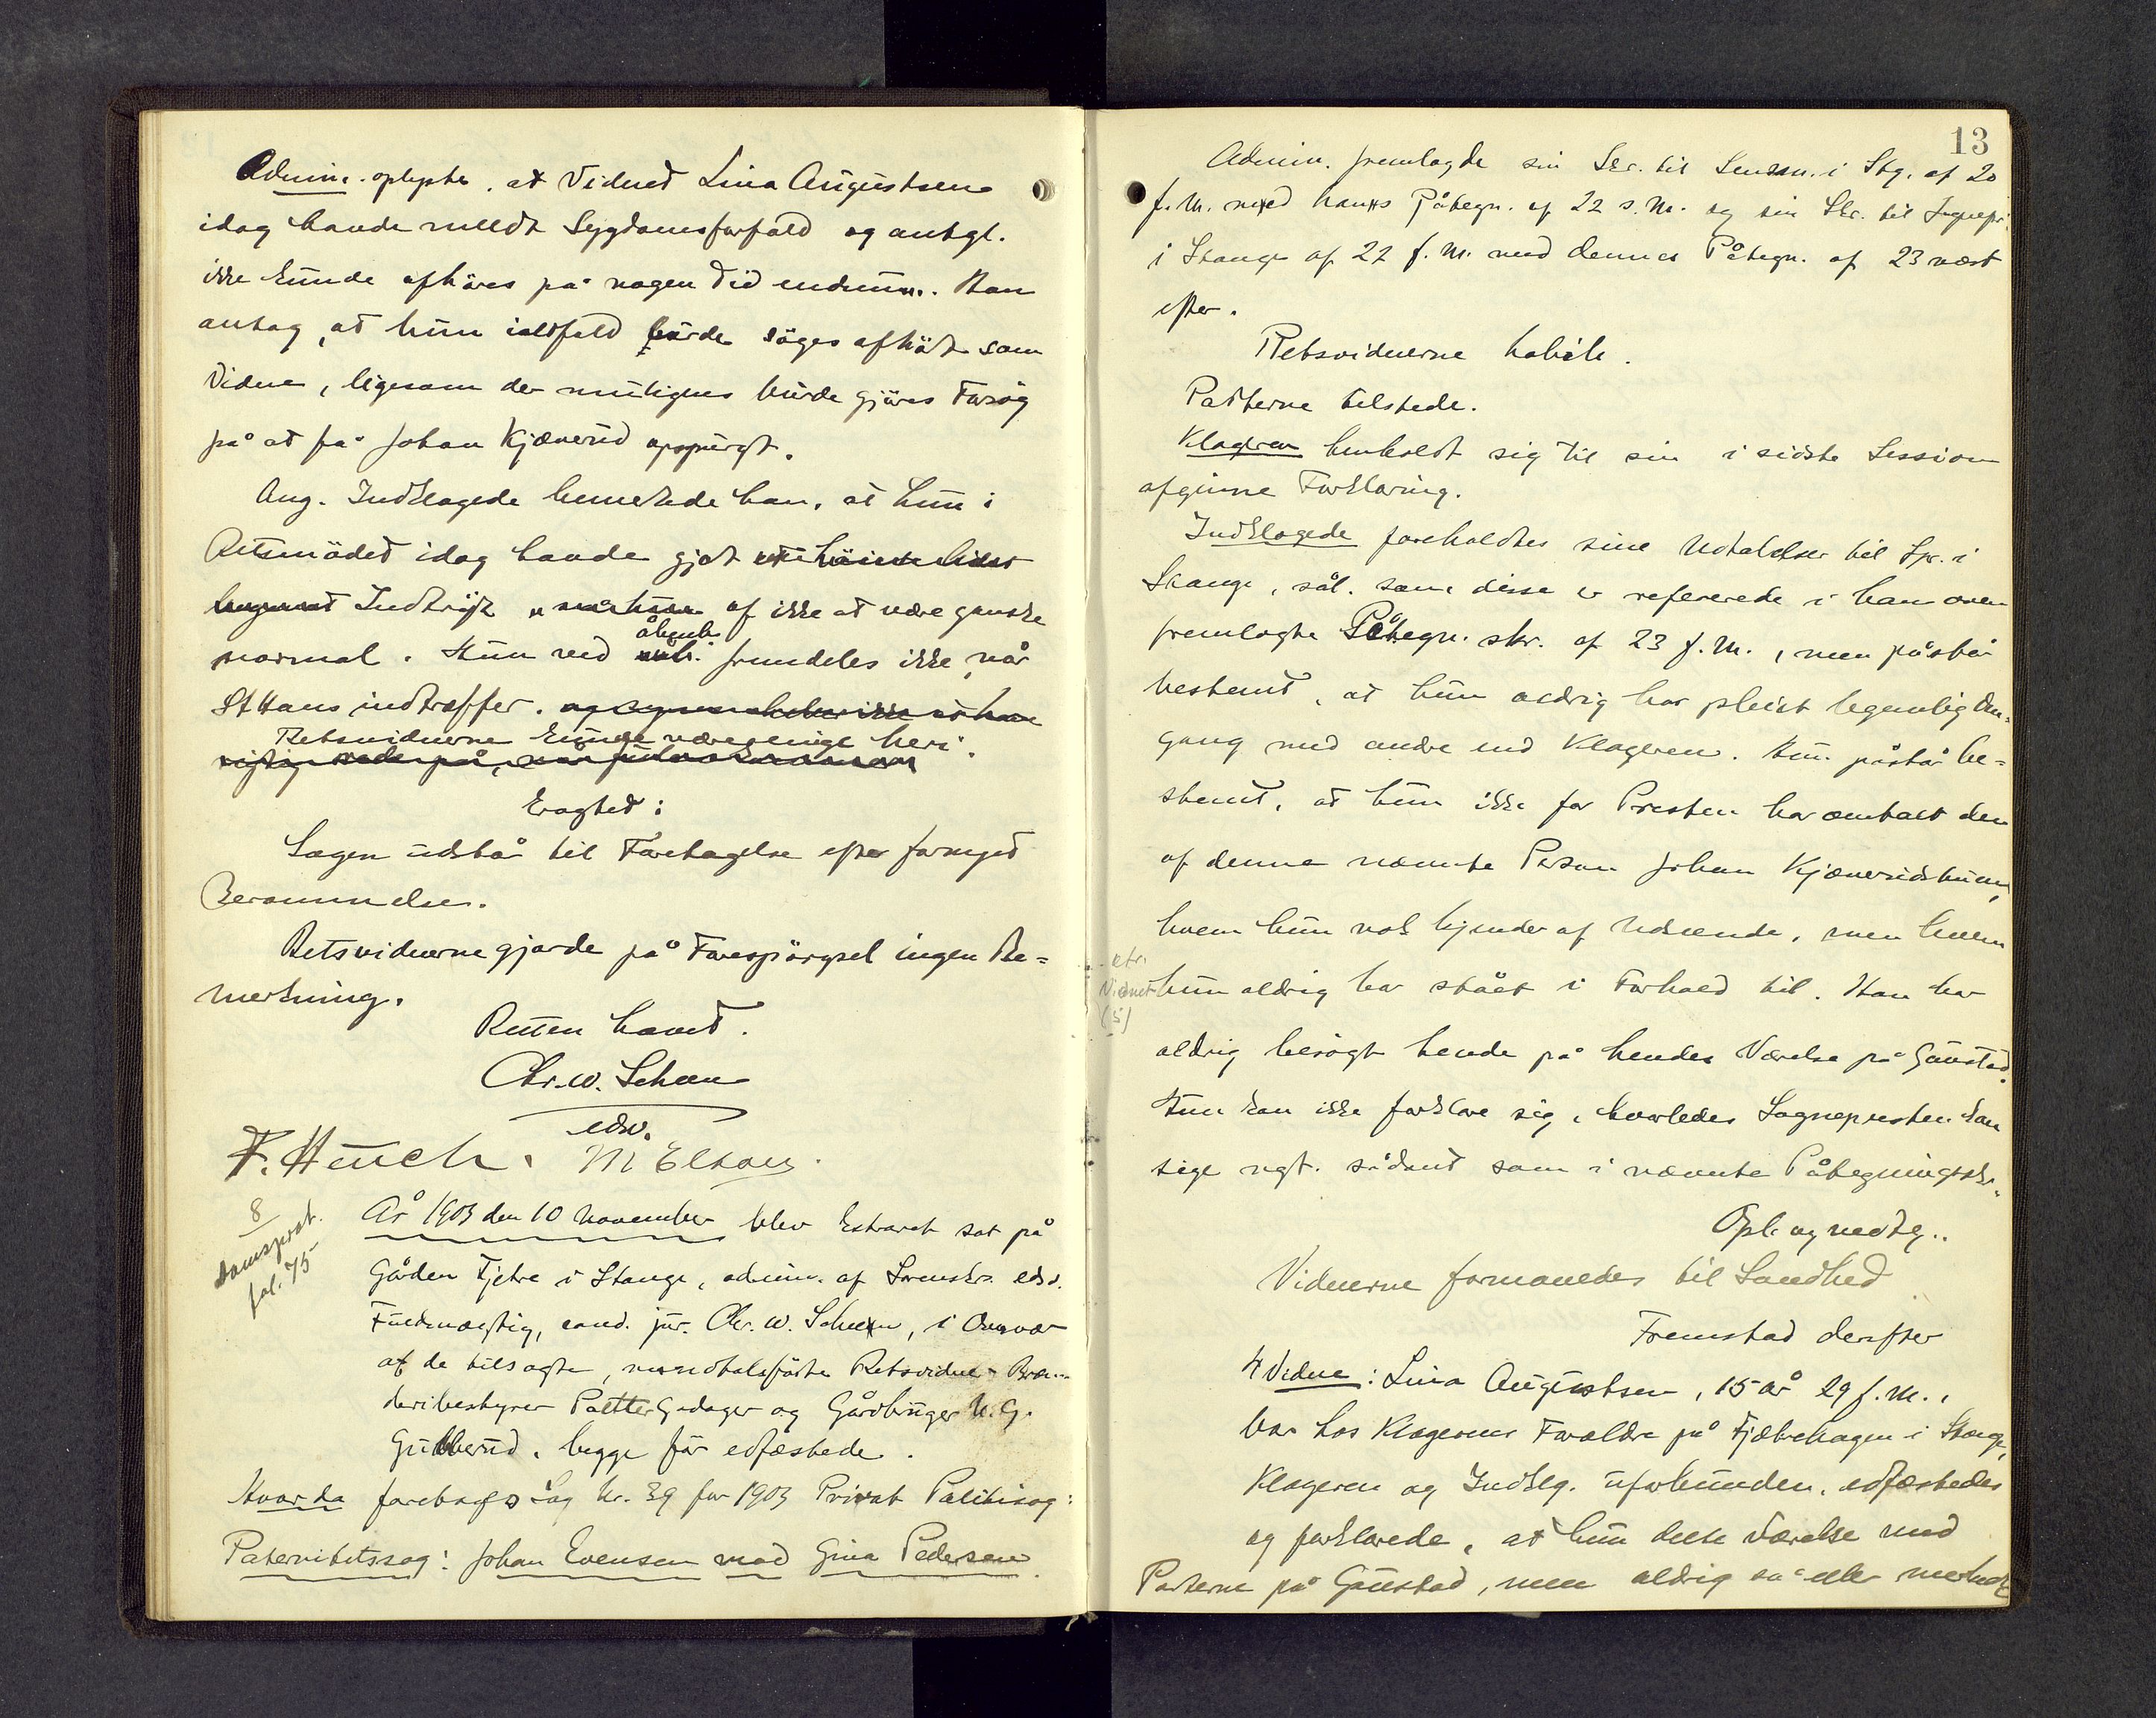 Admin. oplyste, at Vidnet Lina Augustsen
idag havde meldt Sygdomsforfald og antagl.
ikke kunde afhöres på nogen Tid endnu. Han
antog, at hun ialdfald burde söges afhört som
Vidne, ligesom der muligens burde gjöres Forsög
på at få Johan Kjönerud opspurgt.
Ang. Indklagede bemerkede han, at hun i
Retsmödet idag havde gjort
Indtryk af ikke at være ganske
normal. Hun ved åbenb. fremdeles ikke, når
St Hans indtræffer.
Retsvidnerne kunde være enige heri.
Eragtet:
Sagen udstår til Foretagelse efter fornyet
Berammelse.
Retsvidnerne gjorde på Forespörgsel ingen Be=
merkning.
Retten hævet.
Chr. W. Scheen
edsv.
F. Hüuch. M Elton
8
Domsprot.
fol. 75
År 1903 den 10 November blev Extraret sat på
Gården Fjetre i Stange, admin. af Sorenskr. eds.
Fuldmægtig, cand. jur. Chr. W. Scheen, i Overvær
af de tilsagte, mandtalsförte Retsvidner Bræn-
deribestyrer Petter Gedager og Gårdbruger N. G.
Gulberud, begge för edfæstede.
Hvor da foretoges Sag Nr. 39 for 1903 Privat Politisag:
Paternitetssag: Johan Evensen mod Gina Pedersen.
13
Admin. fremlagde sin Skr. til Lensm. i Stg. af 20
f. M. med hans Påtegn. af 22 s. M. og sin Skr. til Sognepr.
i Stange af 22 f. M. med dennes Påtegn. af 23 næst
efter.
Retsvidnerne habile.
Parterne tilstede.
Klageren henholdt sig til sin i sidste Session
afgivne Forklaring.
Indklagede foreholdtes sine Udtalelser til Spr. i
Stange, sål. som disse er refererede i hans oven
fremlagte Påtegn. skr. af 23 f. M., men påstår
bestemt, at hun aldrig har pleiet legemlig Om=
gang med andre end Klageren. Hun påstår be=
stemt, at hun ikke for Presten har omtalt den
af denne nævnte Person Johan Kjönerudstuen,
hvem hun nok kjender af Udseende, men hvem
ktr.
Vidnet
(5)
hun aldrig har stået i Forhold til. Han har
aldrig besögt hende på hendes Værelse på Gaustad.
Hun kan ikke forklare sig, hvorledes Sognepresten kan
sige ngt. sådant som i nævnte Påtegningsskr.
Opl. og vedtg..
Vidnerne formanedes til Sandhed
Fremstod derefter
4 Vidne: Lina Augustsen, 15 år 29 f. M.,
bor hos Klagerens Forældre på Fjetrehagen i Stange,
Klageren og Indklg. uforbunden, edfæstedes
og forklarede, at hun delte Værelse med
Parterne på Gaustad, men aldrig så eller merkede